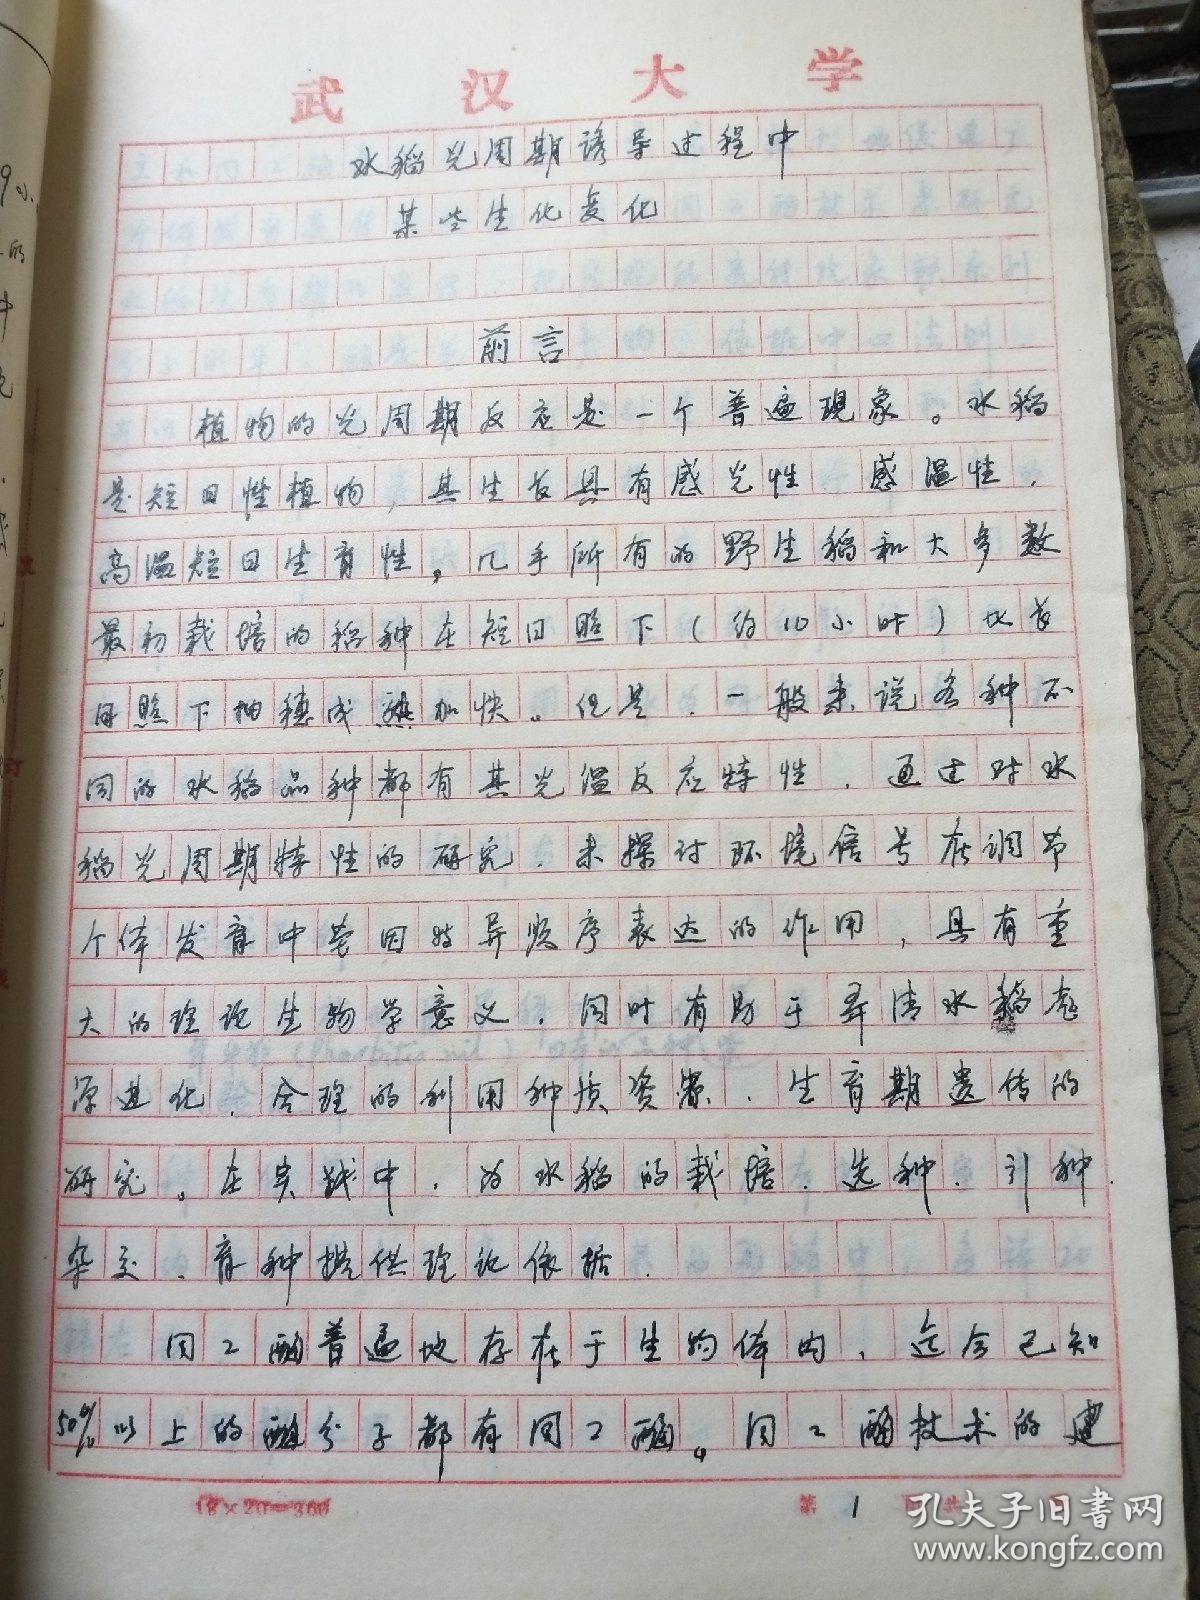 武汉大学
水稻光周期诱导过程中
某些生化变化
前言
植物的光周期反应是一个普遍现象。水稻
是短日性植物，其生长具有感光性 感温性，
高温短日生育性。几乎所有的野生稻和大多数
最初栽培的稻种在短日照下(约10小时)比长
日照下抽穗成熟加快。但是，一般来说各种不
同的水稻品种都有其光温反应特性，通过对水
稻光周期特性的研究，来探讨环境信号在调节
个体发育中基因特异顺序表达的作用，具有重
大的理论生物学意义，同时有助于弄清水稻起
源进化、合理的利用种质资源、生育期遗传的
研究。在实践中，为水稻的栽培、选种、引种
杂交、育种提供理论依据．
同工酶普遍地存在于生物体内，迄今已知
50%以上的酶分子都有同工酶。同工酶技术的建
18×20=360
第 1
孔夫子旧书网
www.kongfz.com